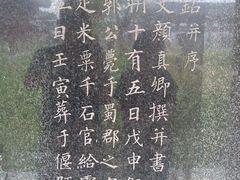 銘并序
文顏真卿撰并書
朔十有五日戊申
郭公薨于蜀郡之
疋米粟千石官給靈
日壬寅葬于偃